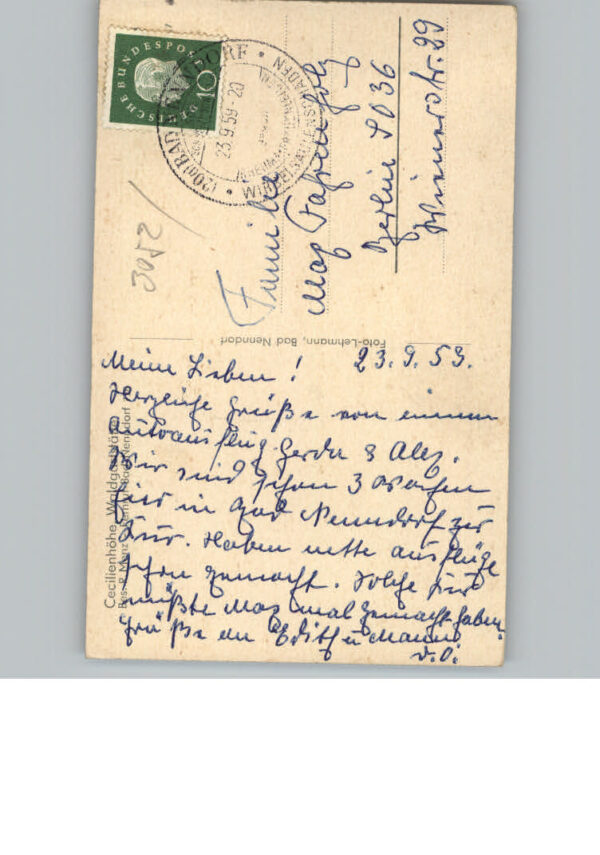 Meine Lieben! 23.9.59.
Herzliche Grüße von einem
Autoausflug. Gerda & Alex.
Wir sind schon 3 Wochen
hier in Bad Nenndorf zur
Kur. Haben nette Ausflüge
schon gemacht. Solche Kur
müßte Max mal gemacht haben.
Grüße an Edith u. Mann
d. O.
Familie
Max
Berlin SO 36
Wienerstr. 29
DEUTSCHE BUNDESPOST
10
(20a) BAD NENNDORF
23.9.59-20
3052/
Foto-Lehmann, Bad Nenndorf
Cecilienhöhe, Waldgaststätte
Bad Nenndorf